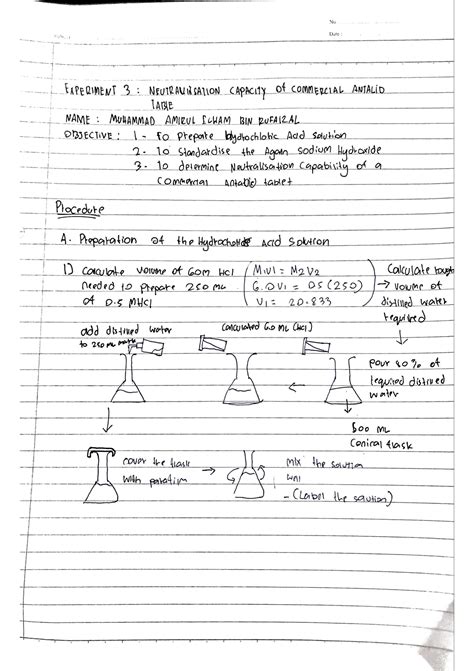 No.
Date:
EXPERIMENT 3 : NEUTRALISATION CAPACITY of COMMERCIAL ANTALID
TABLE
NAME : MUHAMMAD AMIRUL ILHAM BIN RUFAIZAL
OBJECTIVE : 1 - To Prepare hydrochloric Acid solution
2 - To Standardise the Again sodium Hydroxide
3 - To determine Neutralisation Capability of a
Commercial antacid tablet
Procedure
A. Preparation of the Hydrochloric Acid Solution
1) Calculate volume of 6.0M HCl
needed to Prepare 250 mL
of 0.5 MHCl
M1V1 = M2V2
6.0V1 = 0.5 (250)
V1 = 20.833
Calculate
→ volume of
distilled water
required
add distilled water
to 250 mL mark
Calculated 6.0 ML (HCl)
pour 80% of
required distilled
water
500 mL
Conical flask
cover the flask
with parafilm
mix the solution
- (Label the solution)